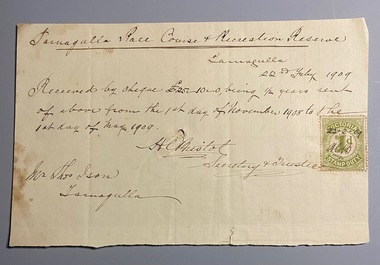 Tarnagulla Race Course & Recreation Reserve
Tarnagulla
22nd July 1909
Received by cheque £25-10-0, being ½ years rent
of above from the 1st day of November 1908 to the
1st day of May 1909.
Secretary & Trustee
Mr Thos
Tarnagulla
STAMP DUTY